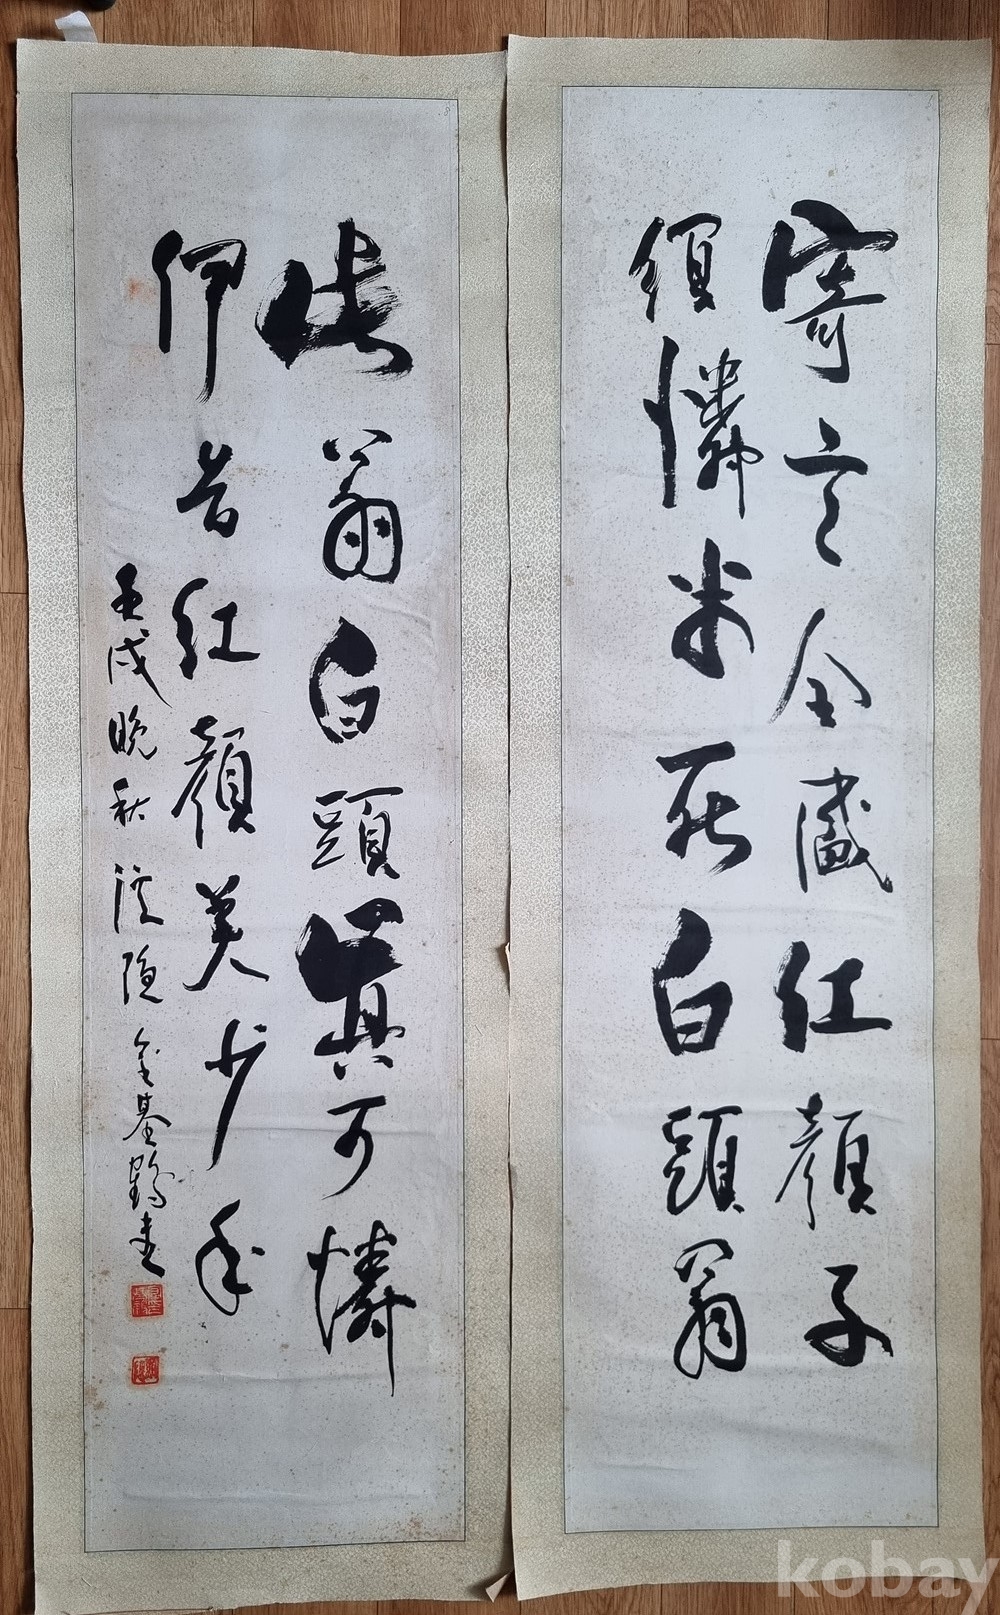 寄言全盛紅顔子
須憐半死白頭翁
此翁白頭眞可憐
伊昔紅顔美少年
壬戌晩秋 隱 金基鶴書
kobay